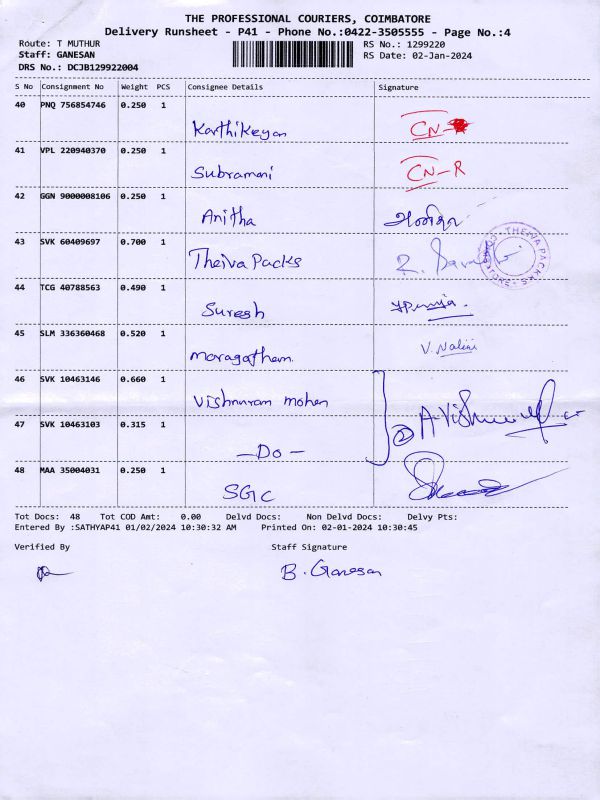 THE PROFESSIONAL COURIERS, COIMBATORE
Delivery Runsheet - P41 - Phone No.:0422-3505555 - Page No.:4
Route: T MUTHUR RS No.: 1299220
Staff: GANESAN RS Date: 02-Jan-2024
DRS No.: DCJB129922004
S No Consignment No Weight PCS Consignee Details Signature
40 PNQ 756854746 0.250 1
Karthikeyan CN-
41 VPL 220940370 0.250 1
Subramani CN-R
42 GGN 9000008106 0.250 1
Anitha
43 SVK 60409697 0.700 1
Theiva Packs R.
THEIVA PACKS
44 TCG 40788563 0.490 1
Suresh
45 SLM 336360468 0.520 1
Maragatham V. Nalini
46 SVK 10463146 0.660 1
Vishnuram Mohen
47 SVK 10463103 0.315 1
- Do - ②
48 MAA 35004031 0.250 1
SGC
Tot Docs: 48 Tot COD Amt: 0.00 Delvd Docs: Non Delvd Docs: Delvy Pts:
Entered By :SATHYAP41 01/02/2024 10:30:32 AM Printed On: 02-01-2024 10:30:45
Verified By Staff Signature
B. Ganesan